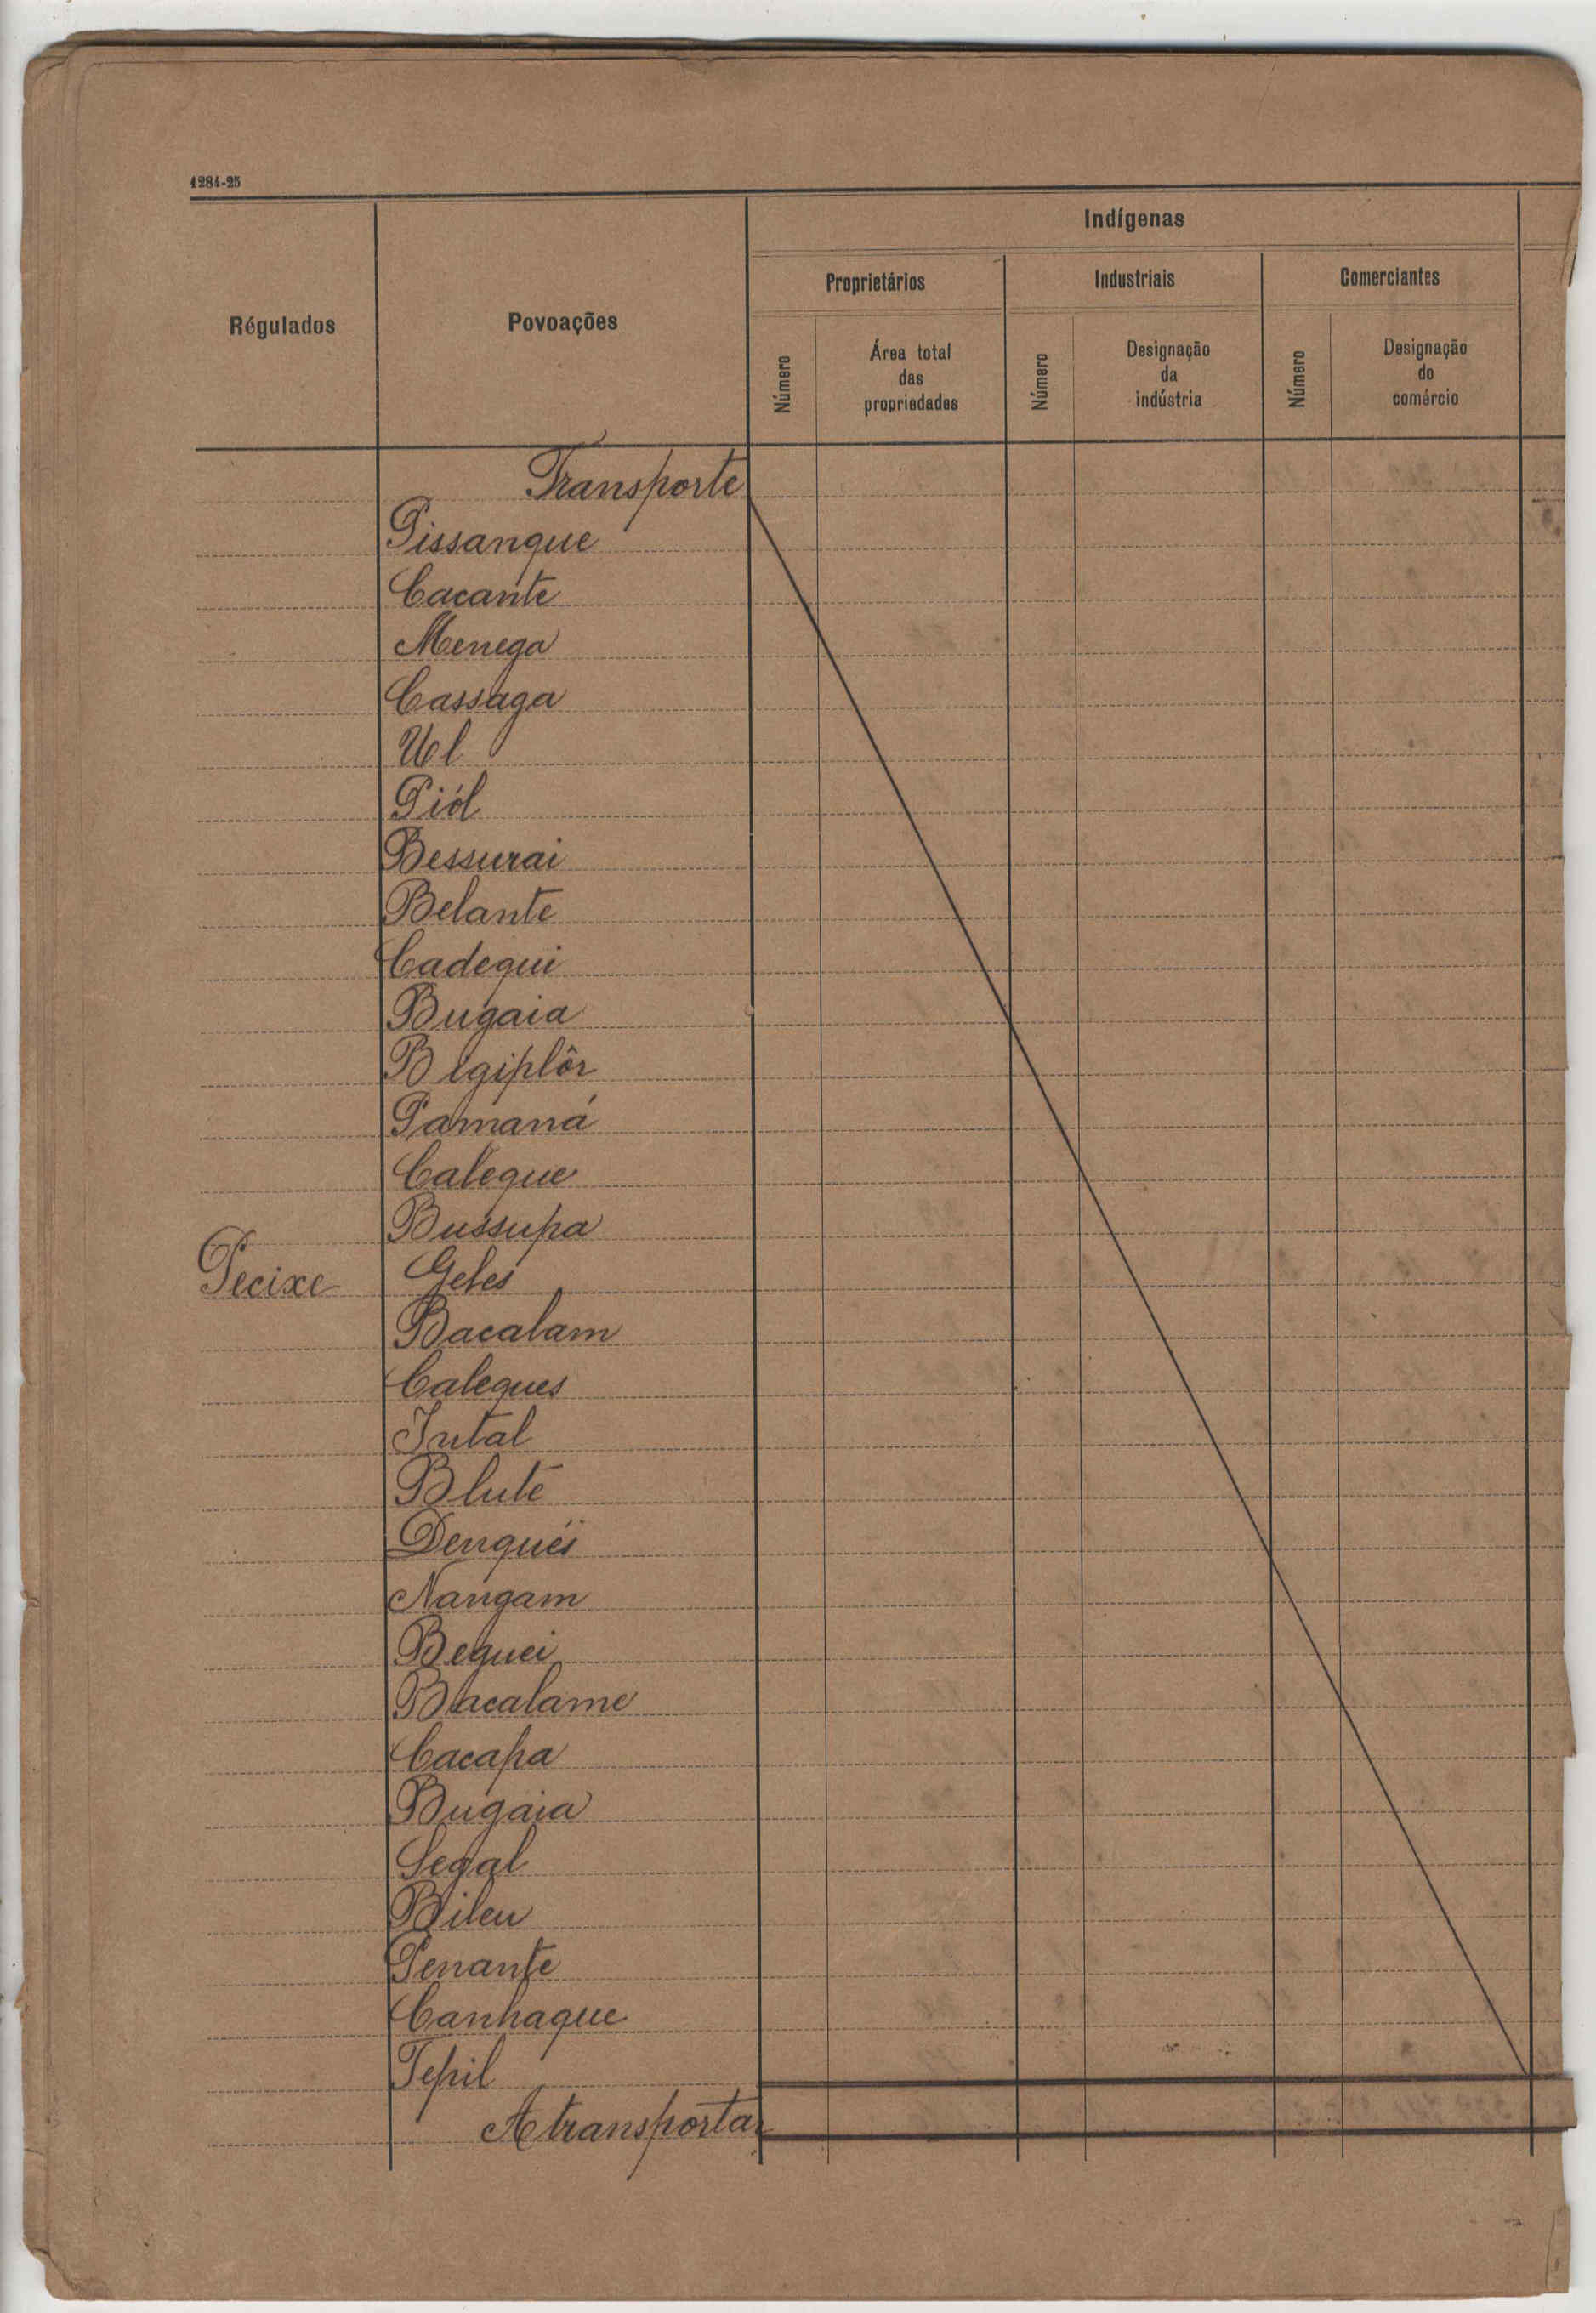 1284-25
Régulados
Povoações
Indígenas
Proprietários
Industriais
Comerciantes
Número
Área total
das
propriedades
Número
Designação
da
indústria
Número
Designação
do
comércio
Transporte
Pissangue
Cacante
Menega
Cassaga
Ul
Piól
Bessurai
Belante
Cadequi
Bugaia
Bigiplôr
Pamaná
Caleque
Bussupa
Pecixe Geles
Bacalam
Caleques
Intal
Blute
Denguéi
Nangam
Bequei
Bacalame
Cacapa
Bugaia
Segal
Bileu
Penante
Canhaque
Tepil
A transportar